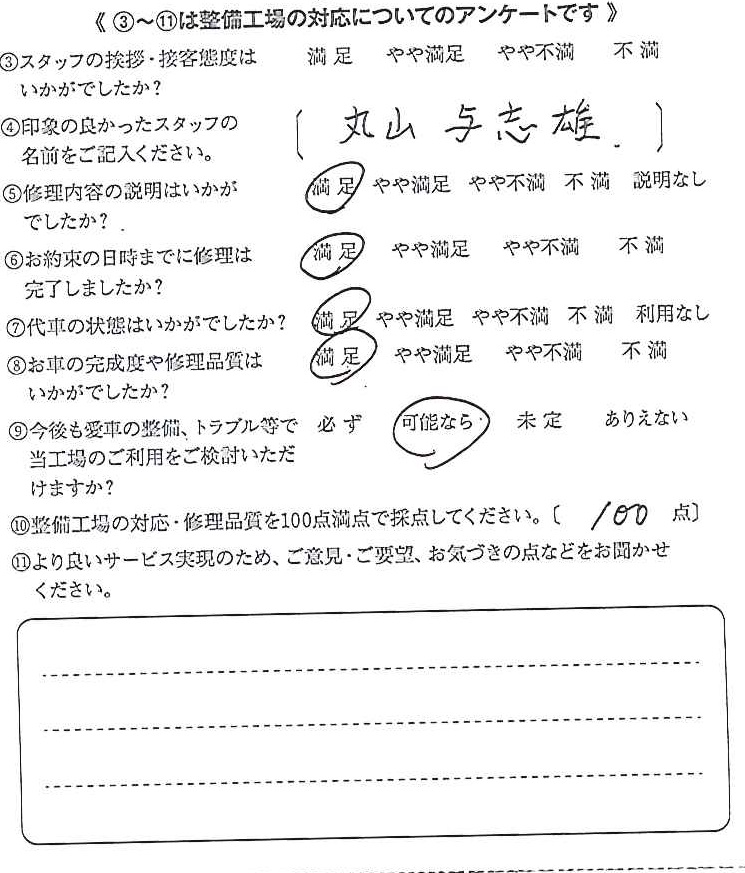 《 ③～⑪は整備工場の対応についてのアンケートです 》
③スタッフの挨拶・接客態度は 満 足 やや満足 やや不満 不 満
いかがでしたか？
④印象の良かったスタッフの 〔 丸山 与志雄. 〕
名前をご記入ください。
⑤修理内容の説明はいかが 満 足 やや満足 やや不満 不 満 説明なし
でしたか？
⑥お約束の日時までに修理は 満 足 やや満足 やや不満 不 満
完了しましたか？
⑦代車の状態はいかがでしたか？ 満 足 やや満足 やや不満 不 満 利用なし
⑧お車の完成度や修理品質は 満 足 やや満足 やや不満 不 満
いかがでしたか？
⑨今後も愛車の整備、トラブル等で 必 ず 可能なら 未 定 ありえない
当工場のご利用をご検討いただ
けますか？
⑩整備工場の対応・修理品質を100点満点で採点してください。〔 100 点〕
⑪より良いサービス実現のため、ご意見・ご要望、お気づきの点などをお聞かせ
ください。